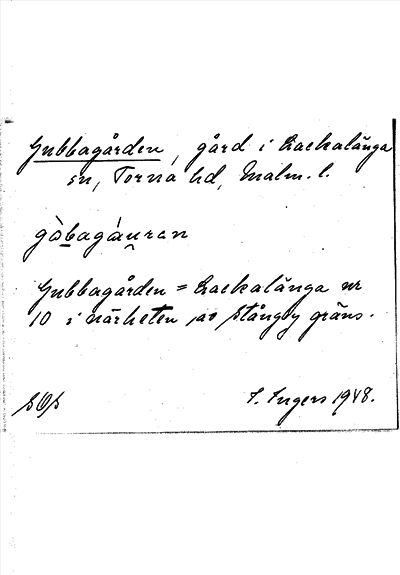 Gubbagården, gård i Hackalänga
sn, Torna hd, Malm. l.
gòbagáuran
Gubbagården = Hackalänga nr
10 i närheten av Stångby gräns.
I. Ingers 1948.